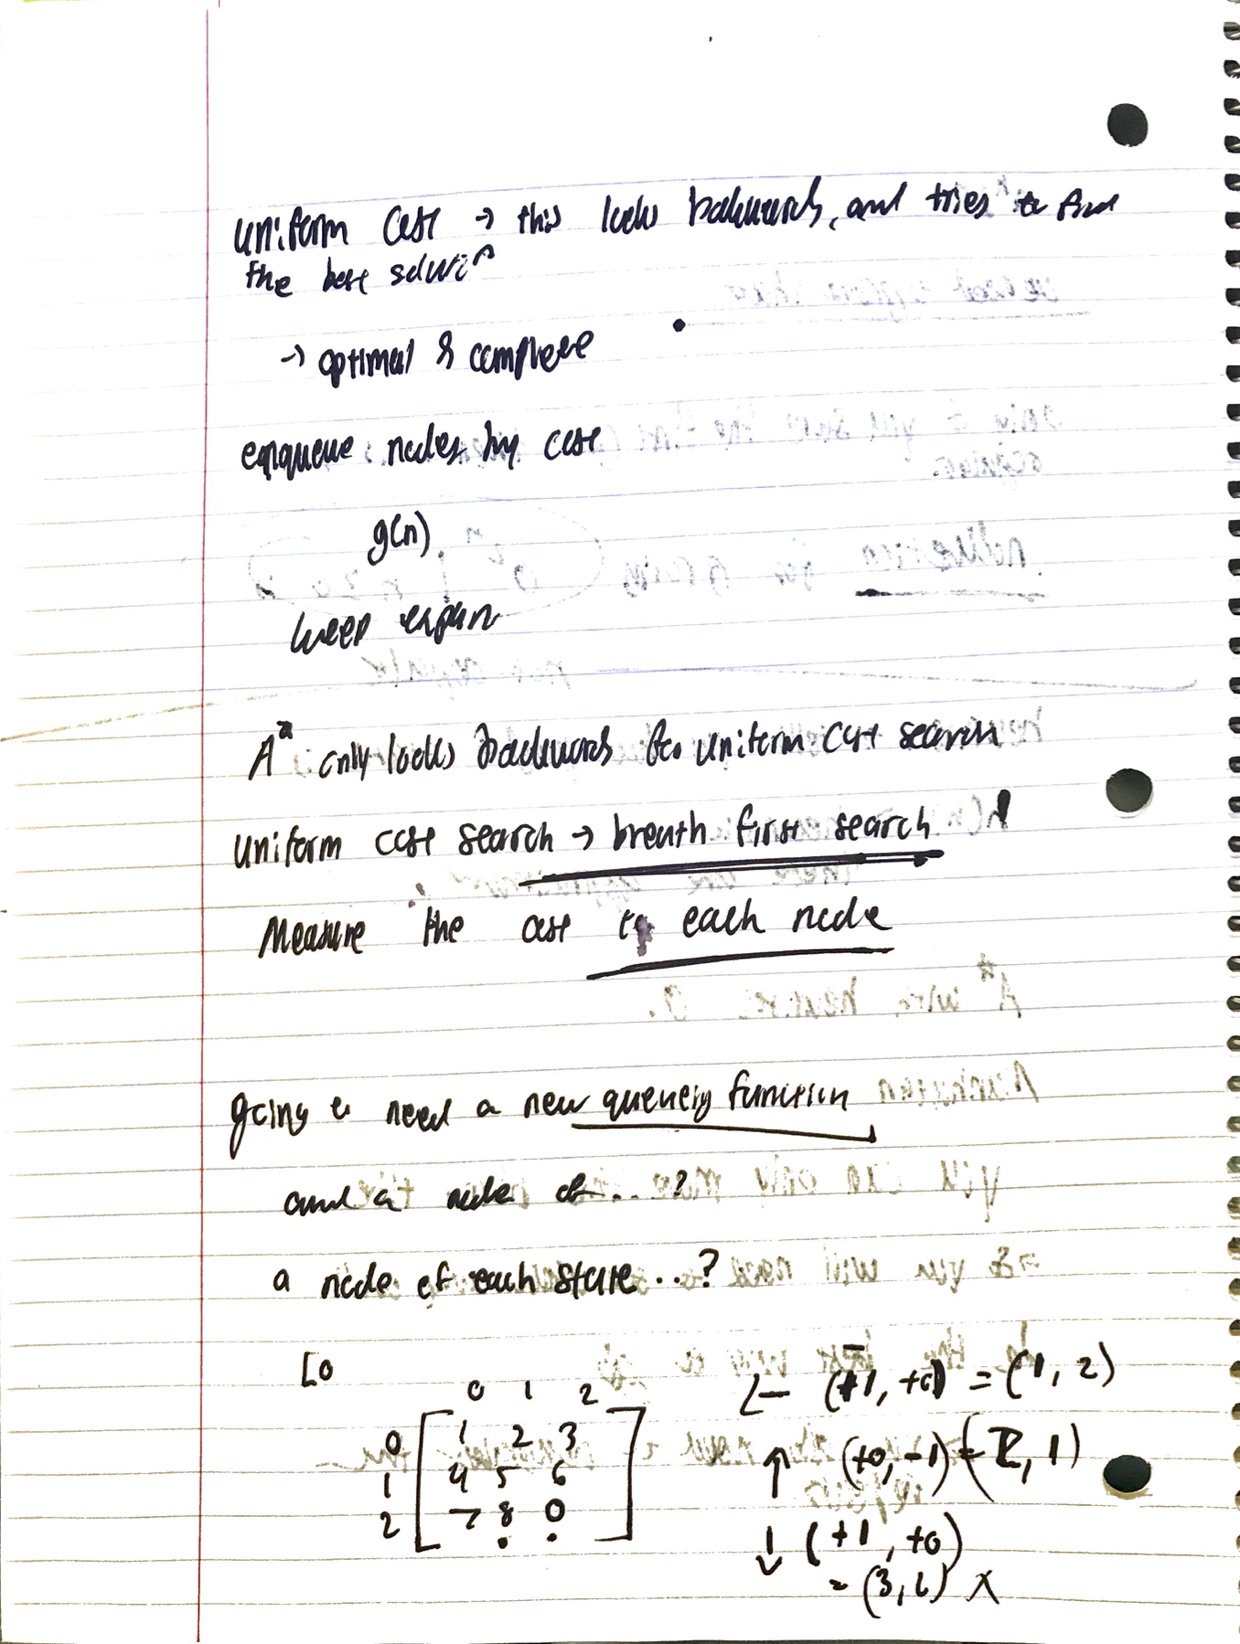 uniform cost → this looks backwards, and tries to find
the best solution
→ optimal & complete
enqueue nodes by cost
g(n)
keep expan
A* only looks backwards for uniform cost search
uniform cost search → breath first search
Measure the cost to each node
going to need a new queueing function
and a node of...?
a node of each state...?
[0
0 1 2
0 1 2 3
1 4 5 6
2 7 8 0
← (-1, +0) = (1, 2)
↑ (+0, -1) = (2, 1)
↓ (+1, +0)
= (3, 2) X